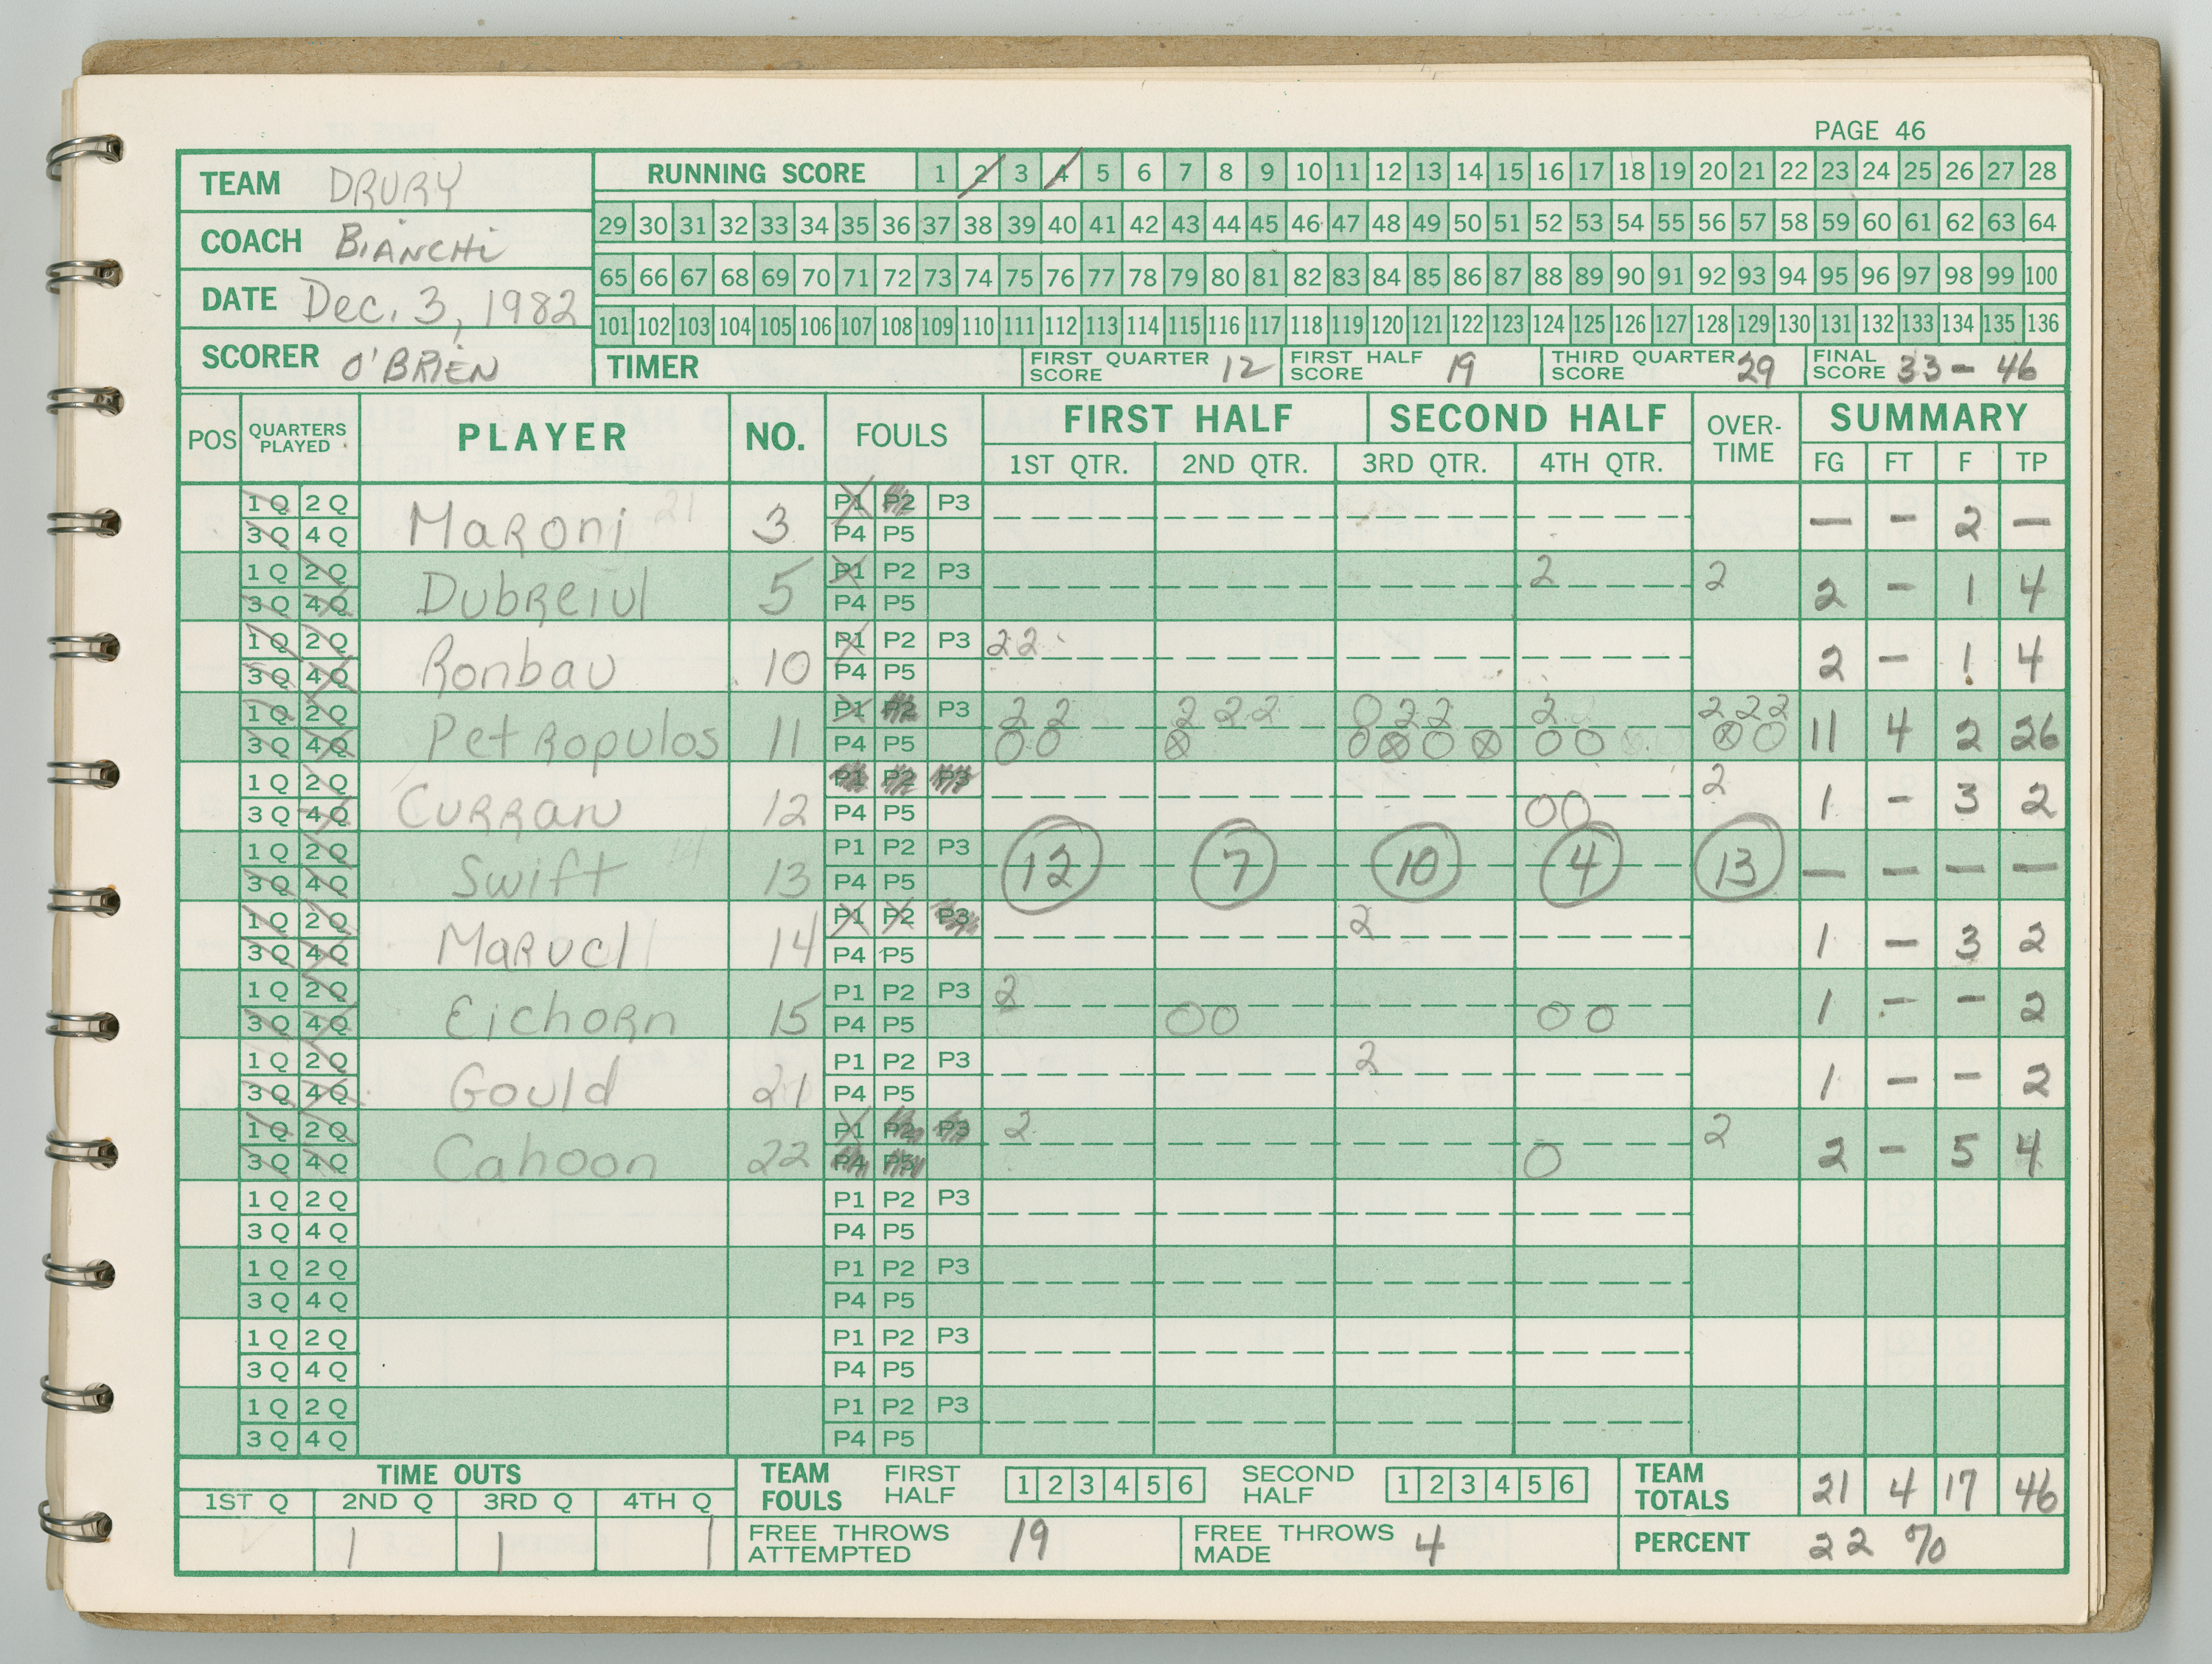 PAGE 46
TEAM DRURY
COACH BIANCHI
DATE Dec. 3, 1982
SCORER O'BRIEN
RUNNING SCORE 1 2 3 4 5 6 7 8 9 10 11 12 13 14 15 16 17 18 19 20 21 22 23 24 25 26 27 28
29 30 31 32 33 34 35 36 37 38 39 40 41 42 43 44 45 46 47 48 49 50 51 52 53 54 55 56 57 58 59 60 61 62 63 64
65 66 67 68 69 70 71 72 73 74 75 76 77 78 79 80 81 82 83 84 85 86 87 88 89 90 91 92 93 94 95 96 97 98 99 100
101 102 103 104 105 106 107 108 109 110 111 112 113 114 115 116 117 118 119 120 121 122 123 124 125 126 127 128 129 130 131 132 133 134 135 136
TIMER FIRST QUARTER SCORE 12 FIRST HALF SCORE 19 THIRD QUARTER SCORE 29 FINAL SCORE 33 - 46
POS QUARTERS PLAYED PLAYER NO. FOULS FIRST HALF SECOND HALF OVER-TIME SUMMARY
1ST QTR. 2ND QTR. 3RD QTR. 4TH QTR. FG FT F TP
1Q 2Q 3Q 4Q Maroni 3 P1 P2 P3 P4 P5 — - 2 —
1Q 2Q 3Q 4Q Dubreiul 5 P1 P2 P3 P4 P5 2 2 2 - 1 4
1Q 2Q 3Q 4Q Ronbau 10 P1 P2 P3 P4 P5 22 2 - 1 4
1Q 2Q 3Q 4Q Petropulos 11 P1 P2 P3 P4 P5 2 2 2 2 2 0 2 2 2 2 2 2 11 4 2 26
1Q 2Q 3Q 4Q Curran 12 P1 P2 P3 P4 P5 2 1 - 3 2
1Q 2Q 3Q 4Q Swift 13 P1 P2 P3 P4 P5 12 7 10 4 13 — — — —
1Q 2Q 3Q 4Q Marucl 14 P1 P2 P3 P4 P5 2 1 - 3 2
1Q 2Q 3Q 4Q Eichorn 15 P1 P2 P3 P4 P5 2 00 00 1 - - 2
1Q 2Q 3Q 4Q Gould 21 P1 P2 P3 P4 P5 2 1 - - 2
1Q 2Q 3Q 4Q Cahoon 22 P1 P2 P3 P4 P5 2 0 2 2 - 5 4
1Q 2Q 3Q 4Q P1 P2 P3 P4 P5
1Q 2Q 3Q 4Q P1 P2 P3 P4 P5
1Q 2Q 3Q 4Q P1 P2 P3 P4 P5
1Q 2Q 3Q 4Q P1 P2 P3 P4 P5
TIME OUTS
1ST Q 2ND Q 3RD Q 4TH Q
1 1 1
TEAM FOULS FIRST HALF 1 2 3 4 5 6 SECOND HALF 1 2 3 4 5 6
TEAM TOTALS 21 4 17 46
FREE THROWS ATTEMPTED 19 FREE THROWS MADE 4 PERCENT 22 %